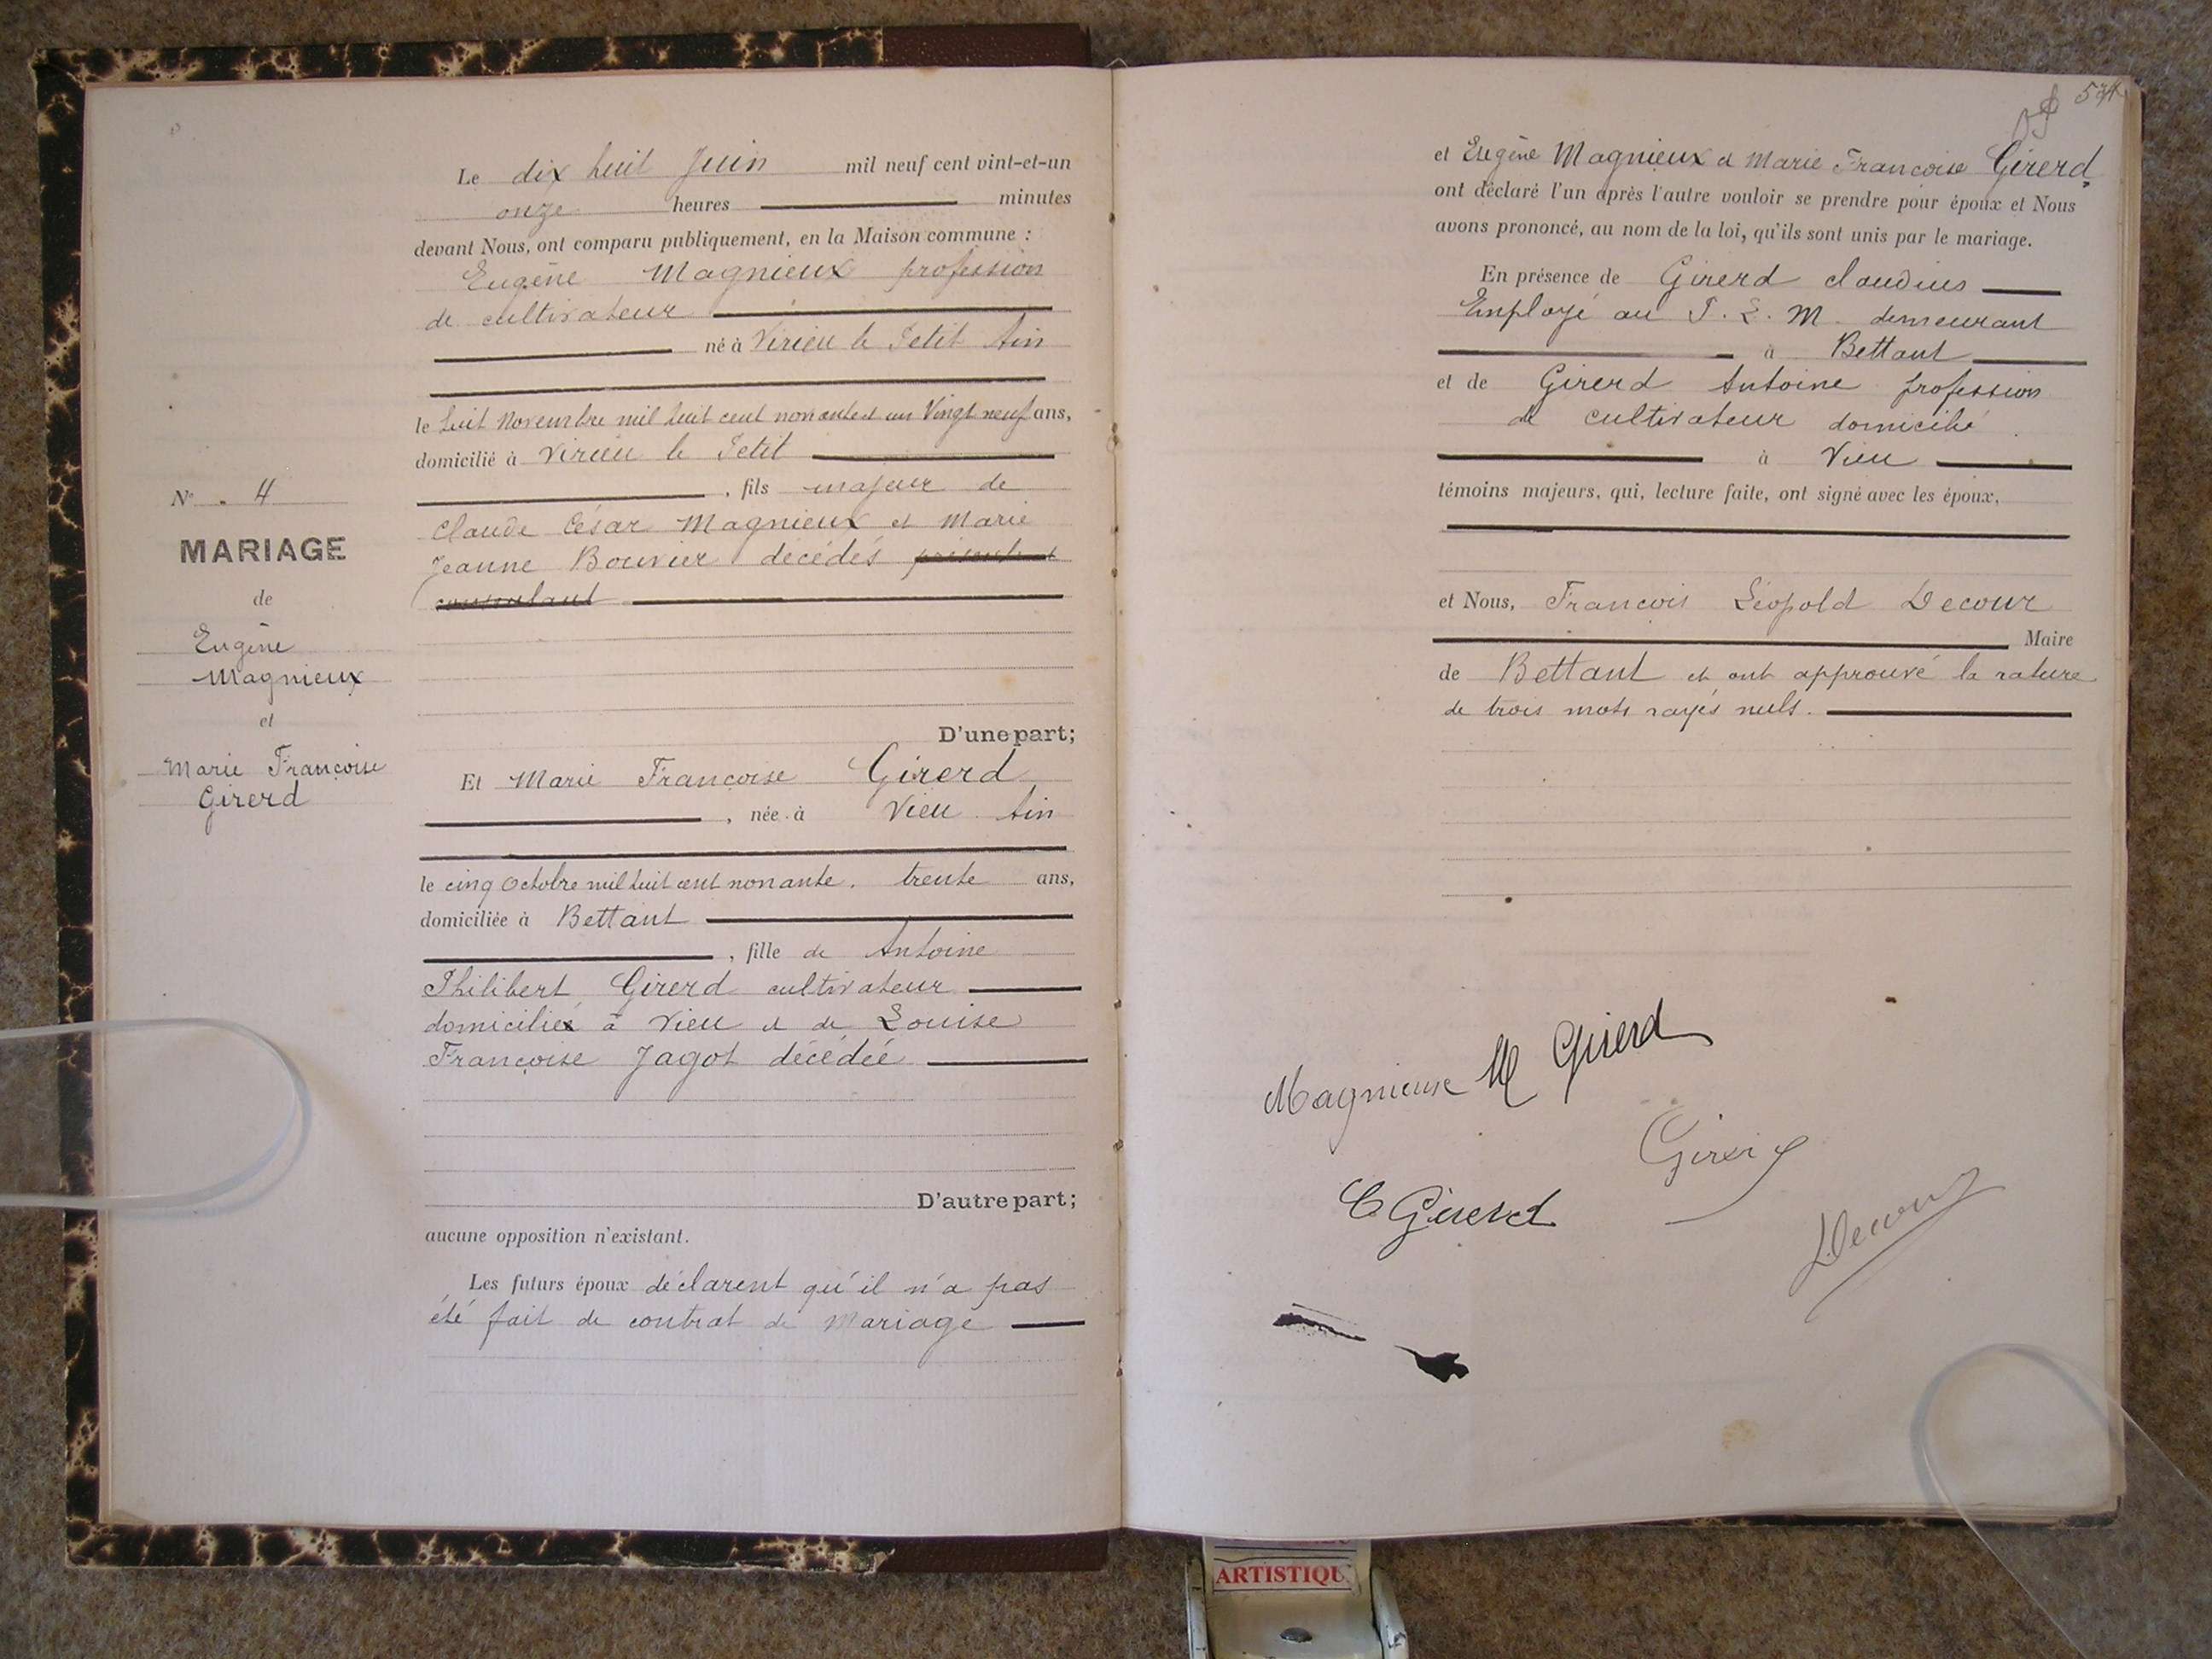 Le dix huit Juin mil neuf cent vint-et-un
onze heures minutes
devant Nous, ont comparu publiquement, en la Maison commune :
Eugène Magnieux profession
de cultivateur
né à Virieu le Petit Ain
le huit Novembre mil huit cent nonante et un Vingt neuf ans,
domicilié à Virieu le Petit
, fils majeur de
Claude César Magnieux et Marie
Jeanne Bouvier décédés
consentant
D'une part;
N° 4
MARIAGE
de
Eugène
Magnieux
et
Marie Françoise
Girerd
Et Marie Françoise Girerd
, née à Vieu Ain
le cinq Octobre mil huit cent nonante. trente ans,
domiciliée à Bettant
, fille de Antoine
Philibert Girerd cultivateur
domicilié à Vieu et de Louise
Françoise Jagot décédée
D'autre part;
aucune opposition n'existant.
Les futurs époux déclarent qu'il n'a pas
été fait de contrat de Mariage
54
et Eugène Magnieux et Marie Françoise Girerd
ont déclaré l'un après l'autre vouloir se prendre pour époux et Nous
avons prononcé, au nom de la loi, qu'ils sont unis par le mariage.
En présence de Girerd Claudius
Employé au P. L. M. demeurant
à Bettant
et de Girerd Antoine profession
de cultivateur domicilié
à Vieu
témoins majeurs, qui, lecture faite, ont signé avec les époux,
et Nous, François Léopold Decour
Maire
de Bettant et ont approuvé la rature
de trois mots rayés nuls.
Magnieux M Girerd
Girerd
C Girerd
Decour
ARTISTIQU